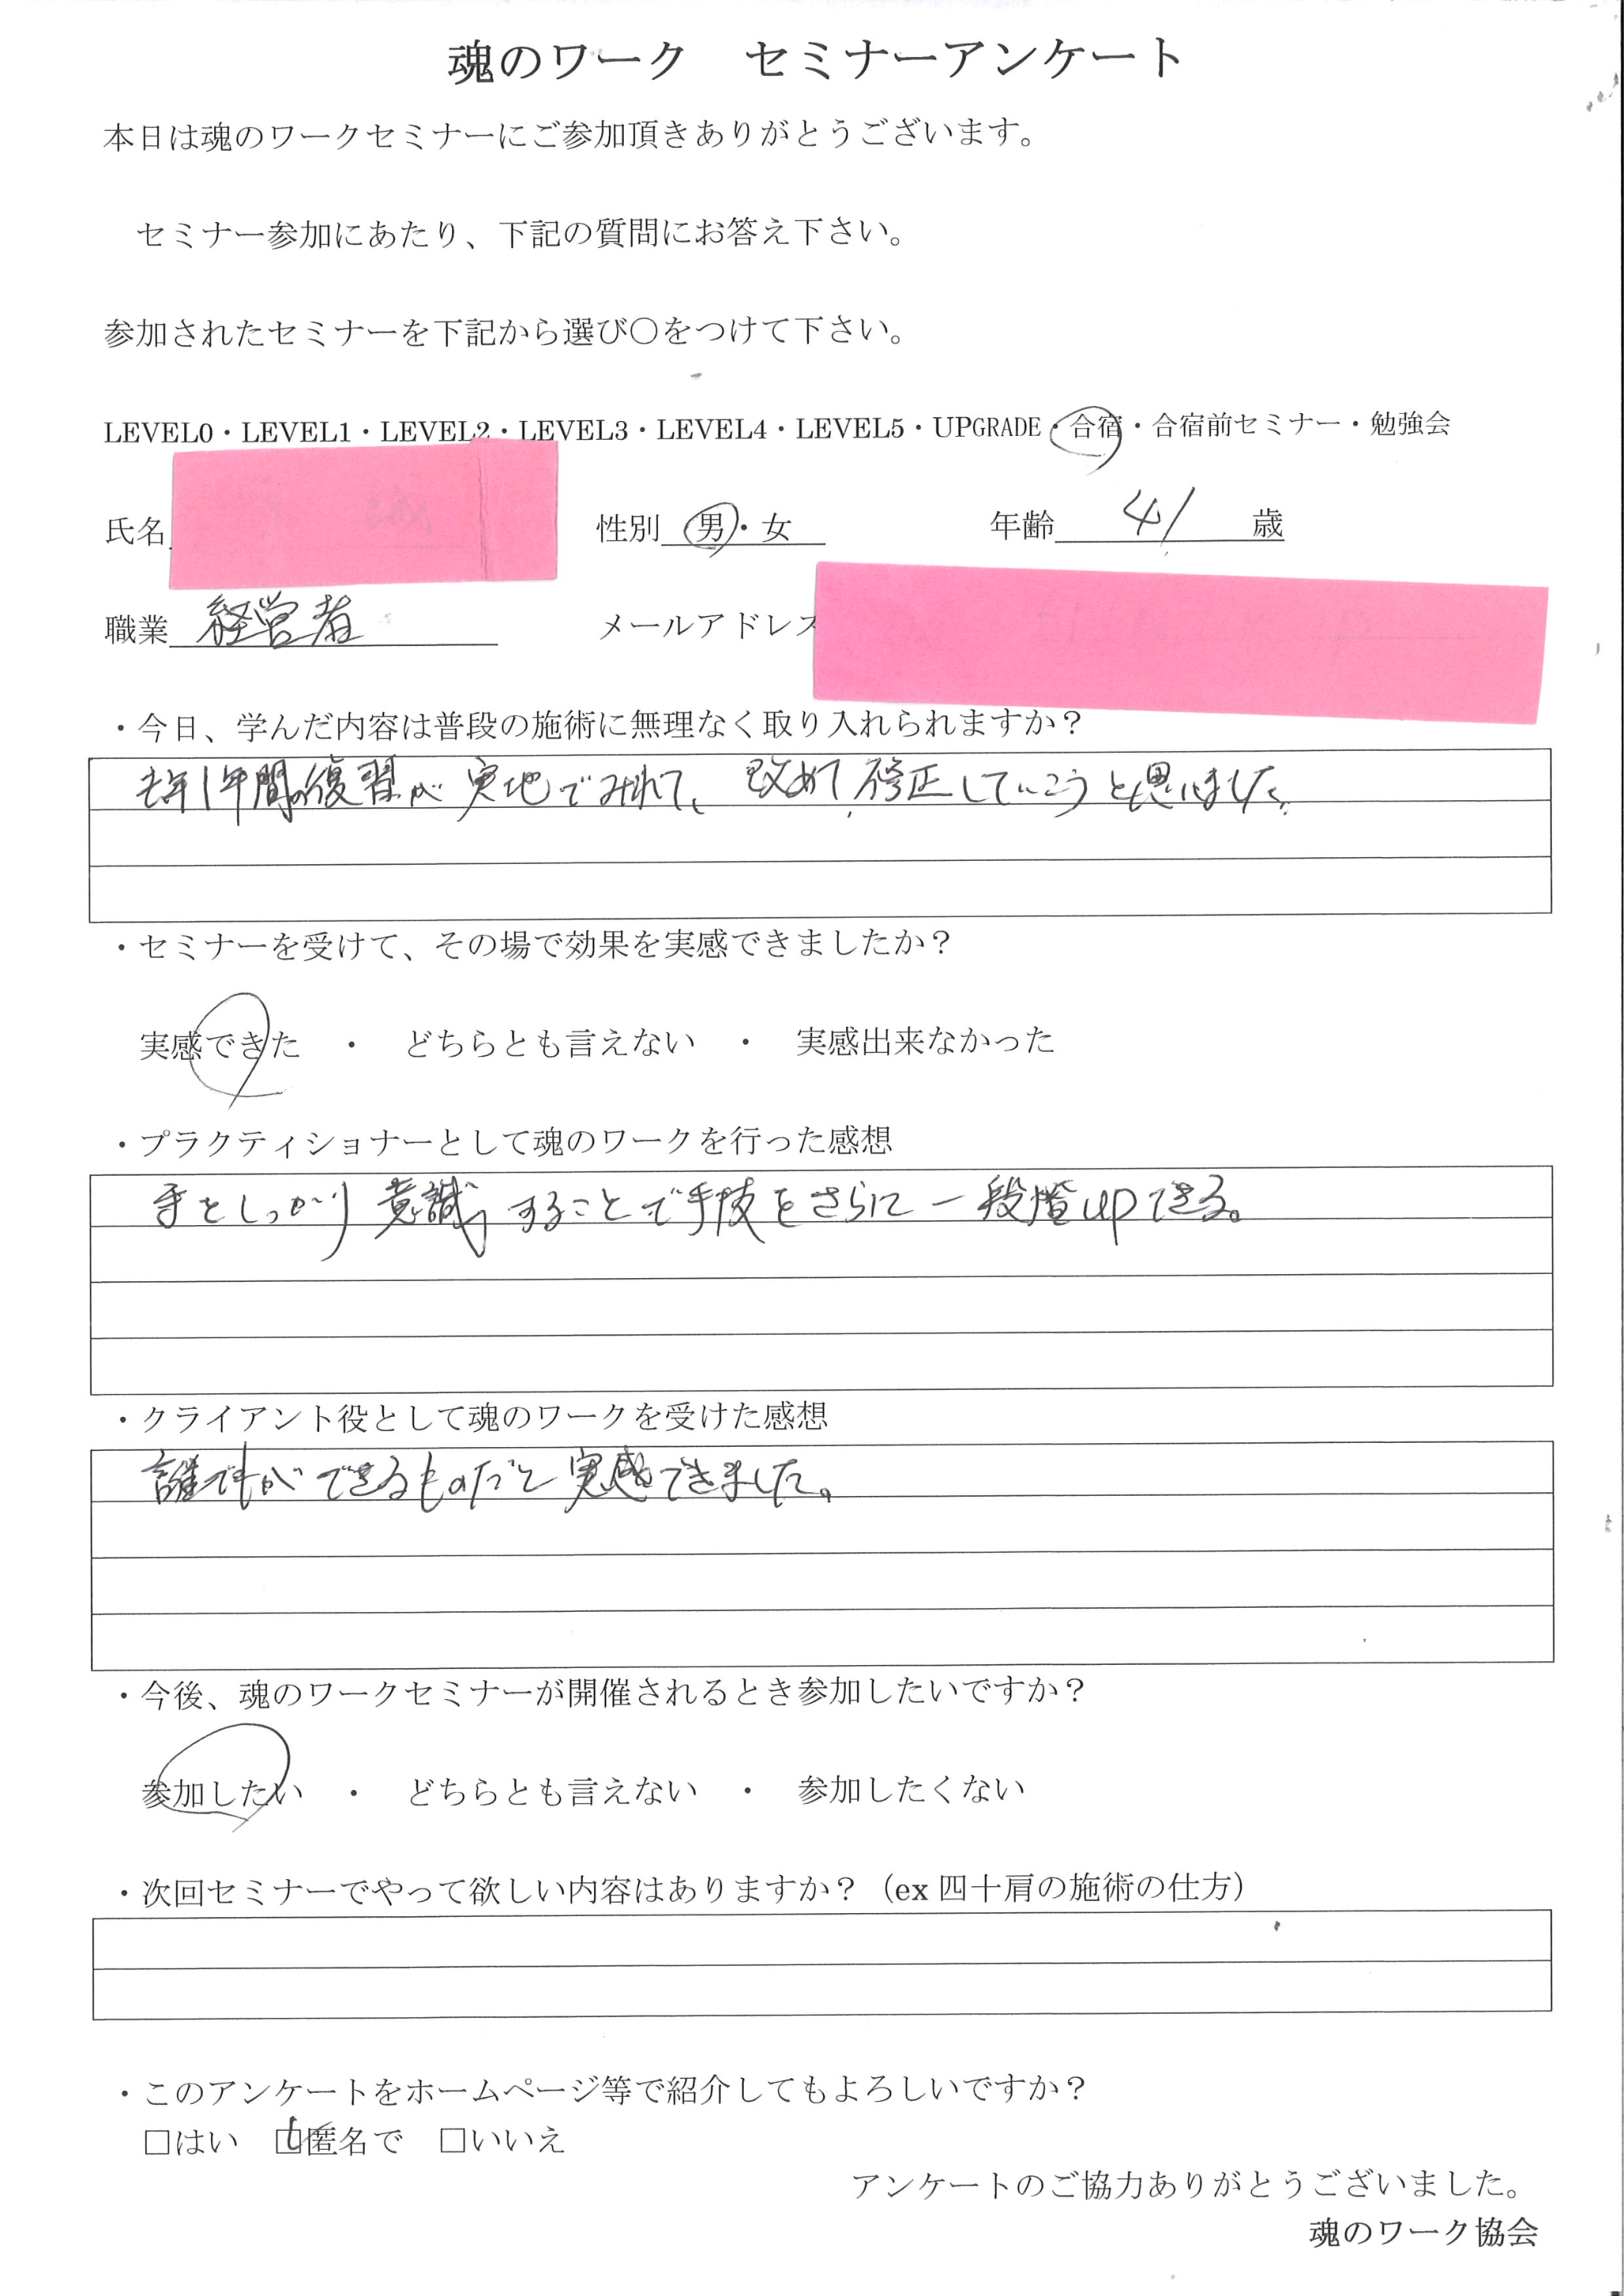 魂のワーク　セミナーアンケート
本日は魂のワークセミナーにご参加頂きありがとうございます。
セミナー参加にあたり、下記の質問にお答え下さい。
参加されたセミナーを下記から選び〇をつけて下さい。
LEVEL0・LEVEL1・LEVEL2・LEVEL3・LEVEL4・LEVEL5・UPGRADE・合宿・合宿前セミナー・勉強会
氏名 性別 男・女 年齢 41 歳
職業 経営者 メールアドレス
・今日、学んだ内容は普段の施術に無理なく取り入れられますか？
去年1年間の復習が実地でみれて、改めて修正していこうと思いました。
・セミナーを受けて、その場で効果を実感できましたか？
実感できた　・　どちらとも言えない　・　実感出来なかった
・プラクティショナーとして魂のワークを行った感想
手をしっかり意識することで手技をさらに一段階upできる。
・クライアント役として魂のワークを受けた感想
誰でもができるものだと実感できました。
・今後、魂のワークセミナーが開催されるとき参加したいですか？
参加したい　・　どちらとも言えない　・　参加したくない
・次回セミナーでやって欲しい内容はありますか？（ex 四十肩の施術の仕方）
・このアンケートをホームページ等で紹介してもよろしいですか？
□はい　□匿名で　□いいえ
アンケートのご協力ありがとうございました。
魂のワーク協会